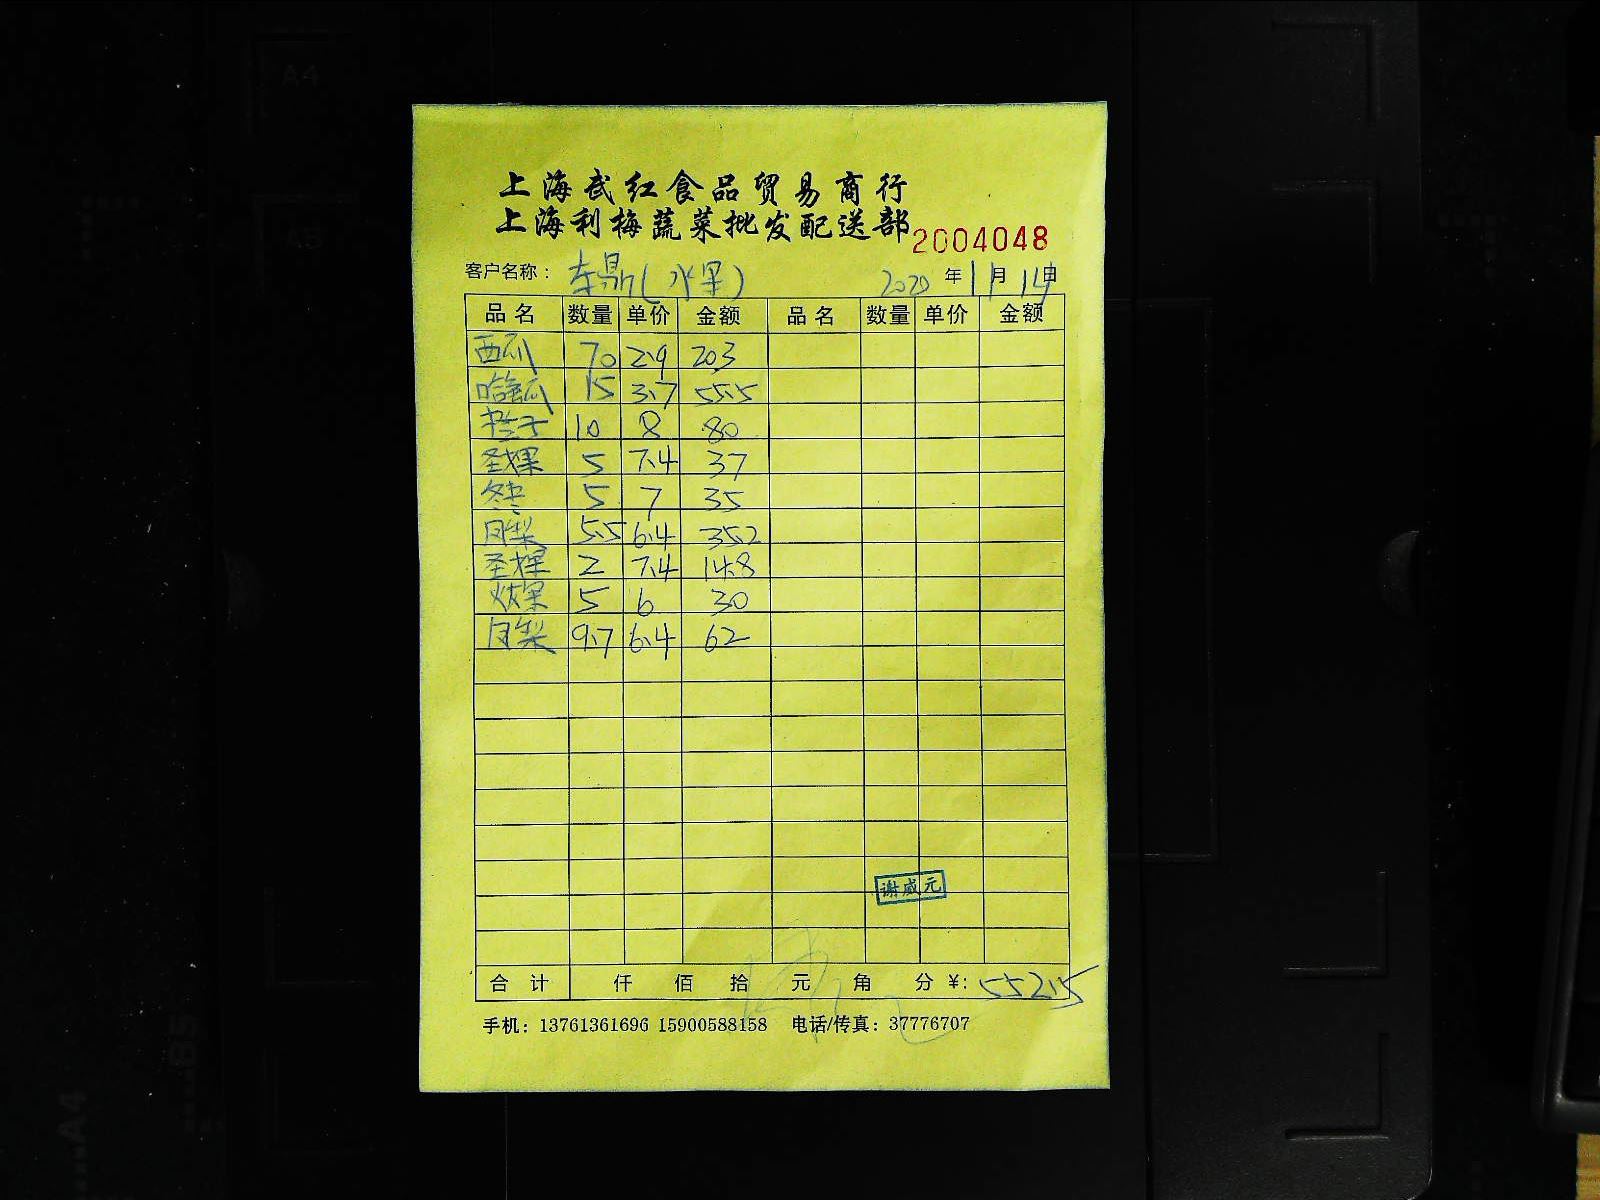 上海武红食品贸易商行
上海利梅蔬菜批发配送部 2004048
客户名称： 东鼎(水果) 2020 年 1 月 14 日
品名 数量 单价 金额 品名 数量 单价 金额
西瓜 70 2.9 203
哈密瓜 15 3.7 55.5
橙子 10 8 80
圣棵 5 7.4 37
冬枣 5 7 35
凤梨 5.5 6.4 35.2
圣棵 2 7.4 14.8
火龙果 5 6 30
凤梨 9.7 6.4 62
谢威元
合计 仟 佰 拾 元 角 分 ¥: 552.5
手机：13761361696 15900588158 电话/传真：37776707
A4
A5
B5
A4